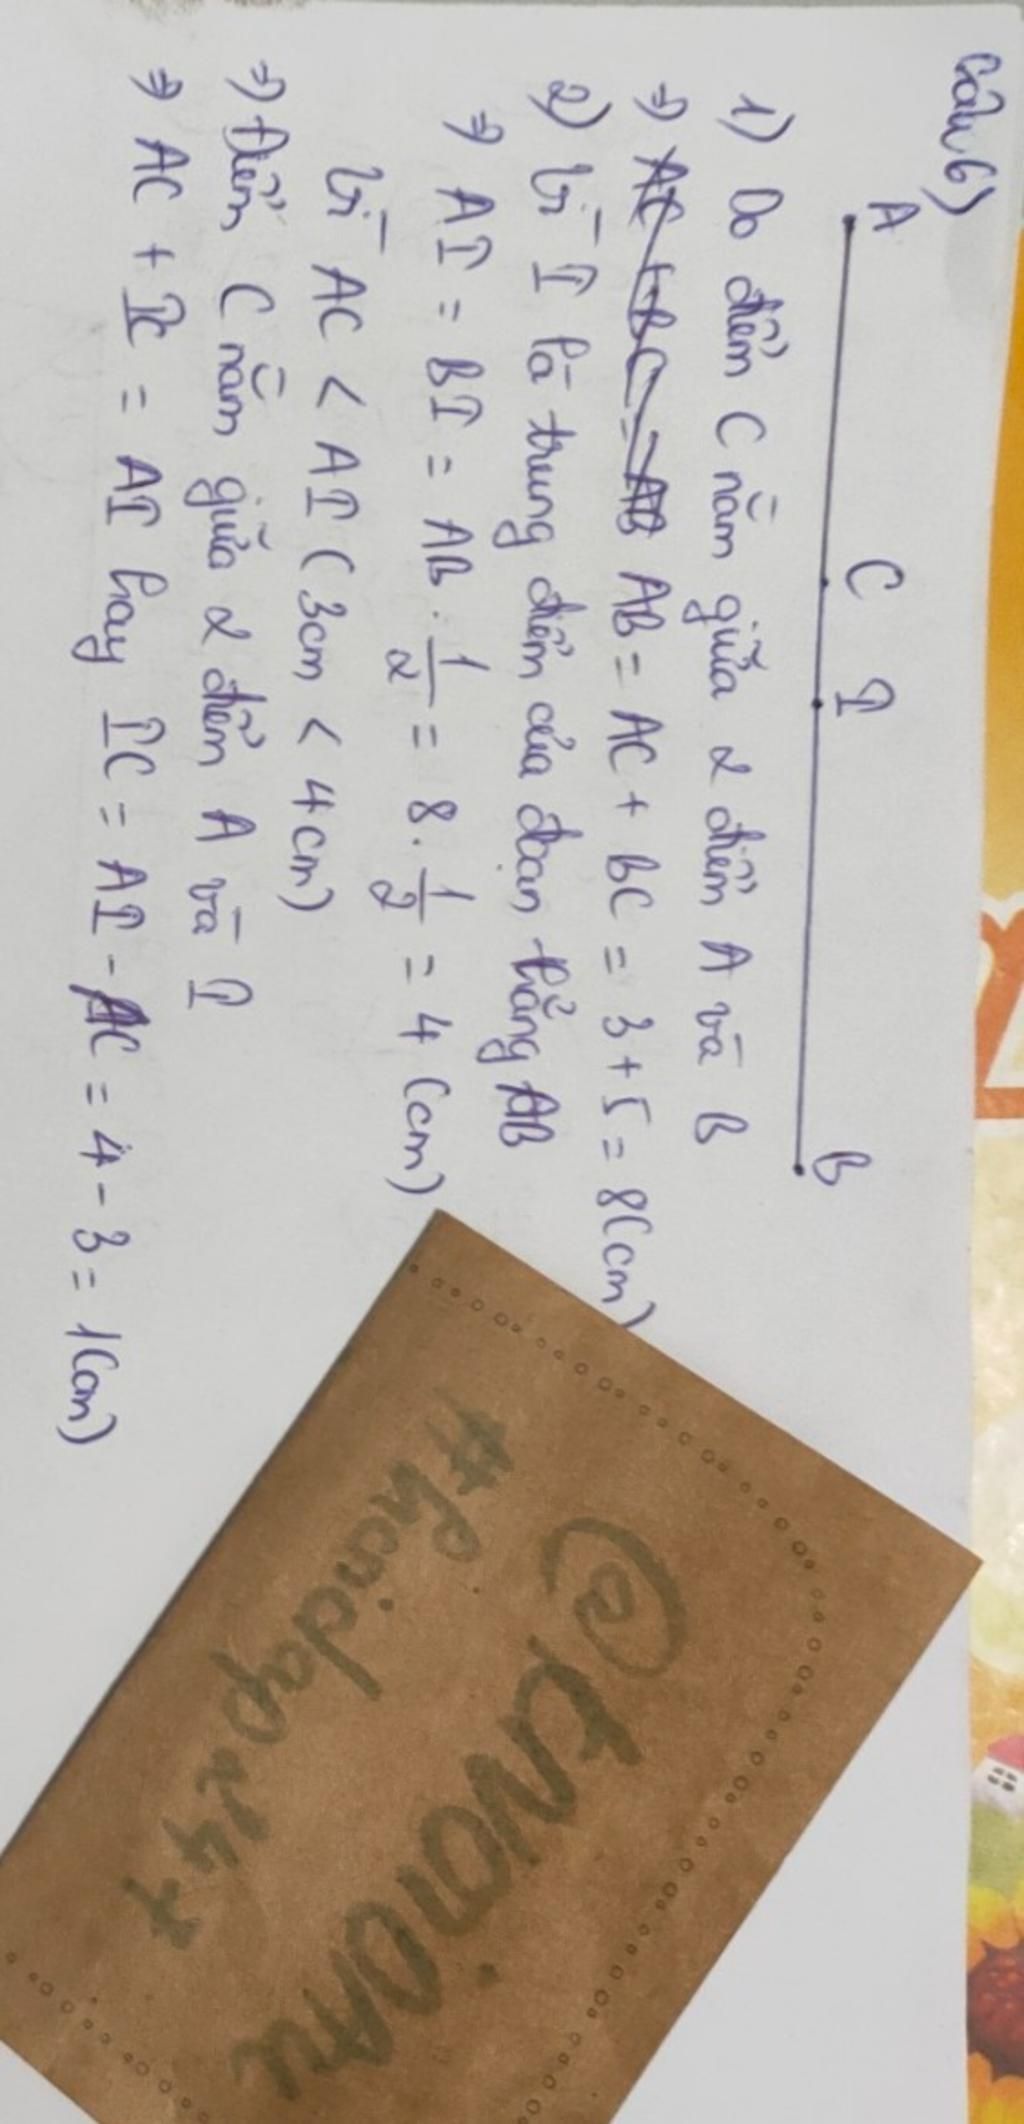 Câu 6)
A C I B
1) Do điểm C nằm giữa 2 điểm A và B
⇒ AC + BC = AB AB = AC + BC = 3 + 5 = 8 (cm)
2) Vì I là trung điểm của đoạn thẳng AB
⇒ AI = BI = AB . 1/2 = 8 . 1/2 = 4 (cm)
Vì AC < AI (3cm < 4cm)
⇒ Điểm C nằm giữa 2 điểm A và I
⇒ AC + IC = AI hay IC = AI - AC = 4 - 3 = 1 (cm)